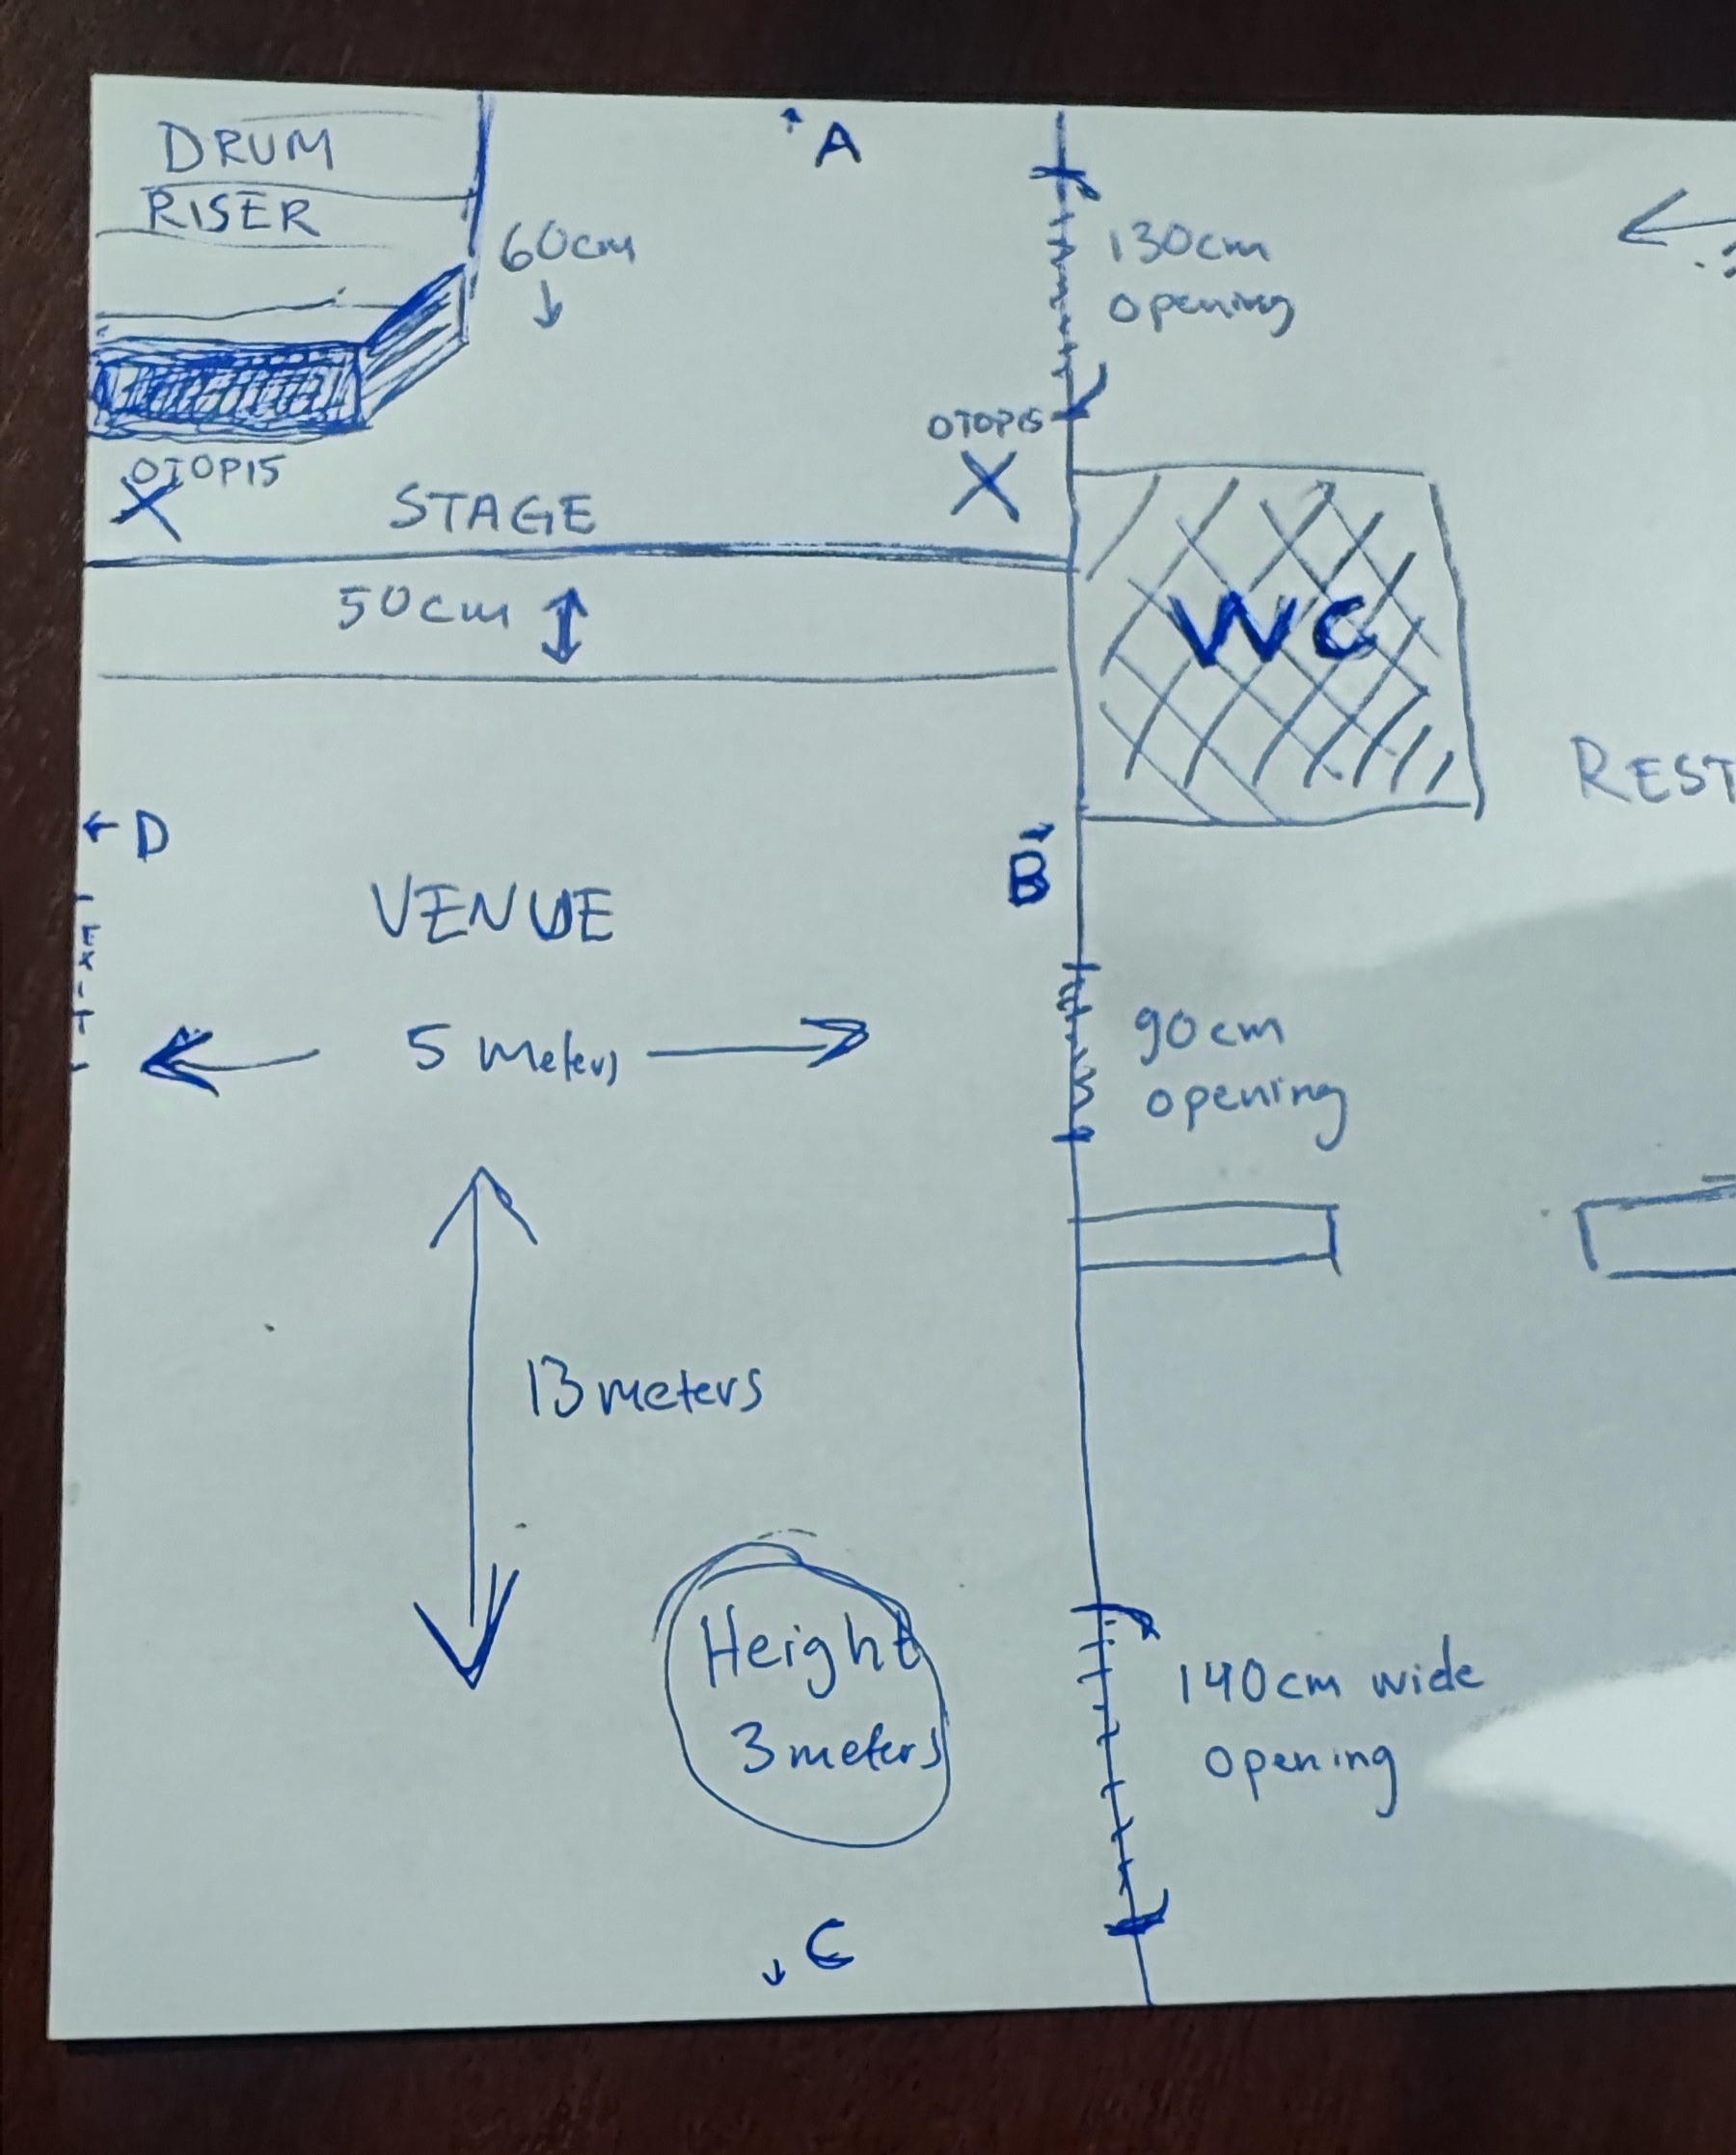 DRUM
RISER
60cm
A
130cm
opening
OTOP15
X
OTOP15
X
STAGE
50cm
WC
REST
D
B
VENUE
EXIT
5 meters
90cm
opening
13 meters
Height
3 meters
140cm wide
opening
C